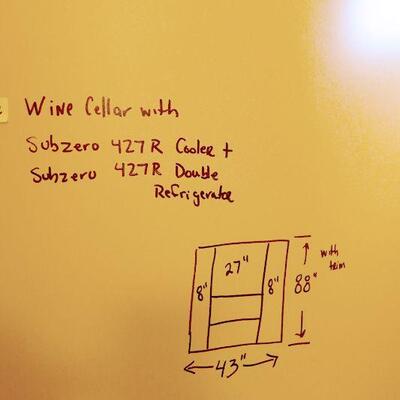 Wine Cellar with
Subzero 427R Cooler +
Subzero 427R Double
Refrigerator
27"
8"
8"
88"
with
trim
43"